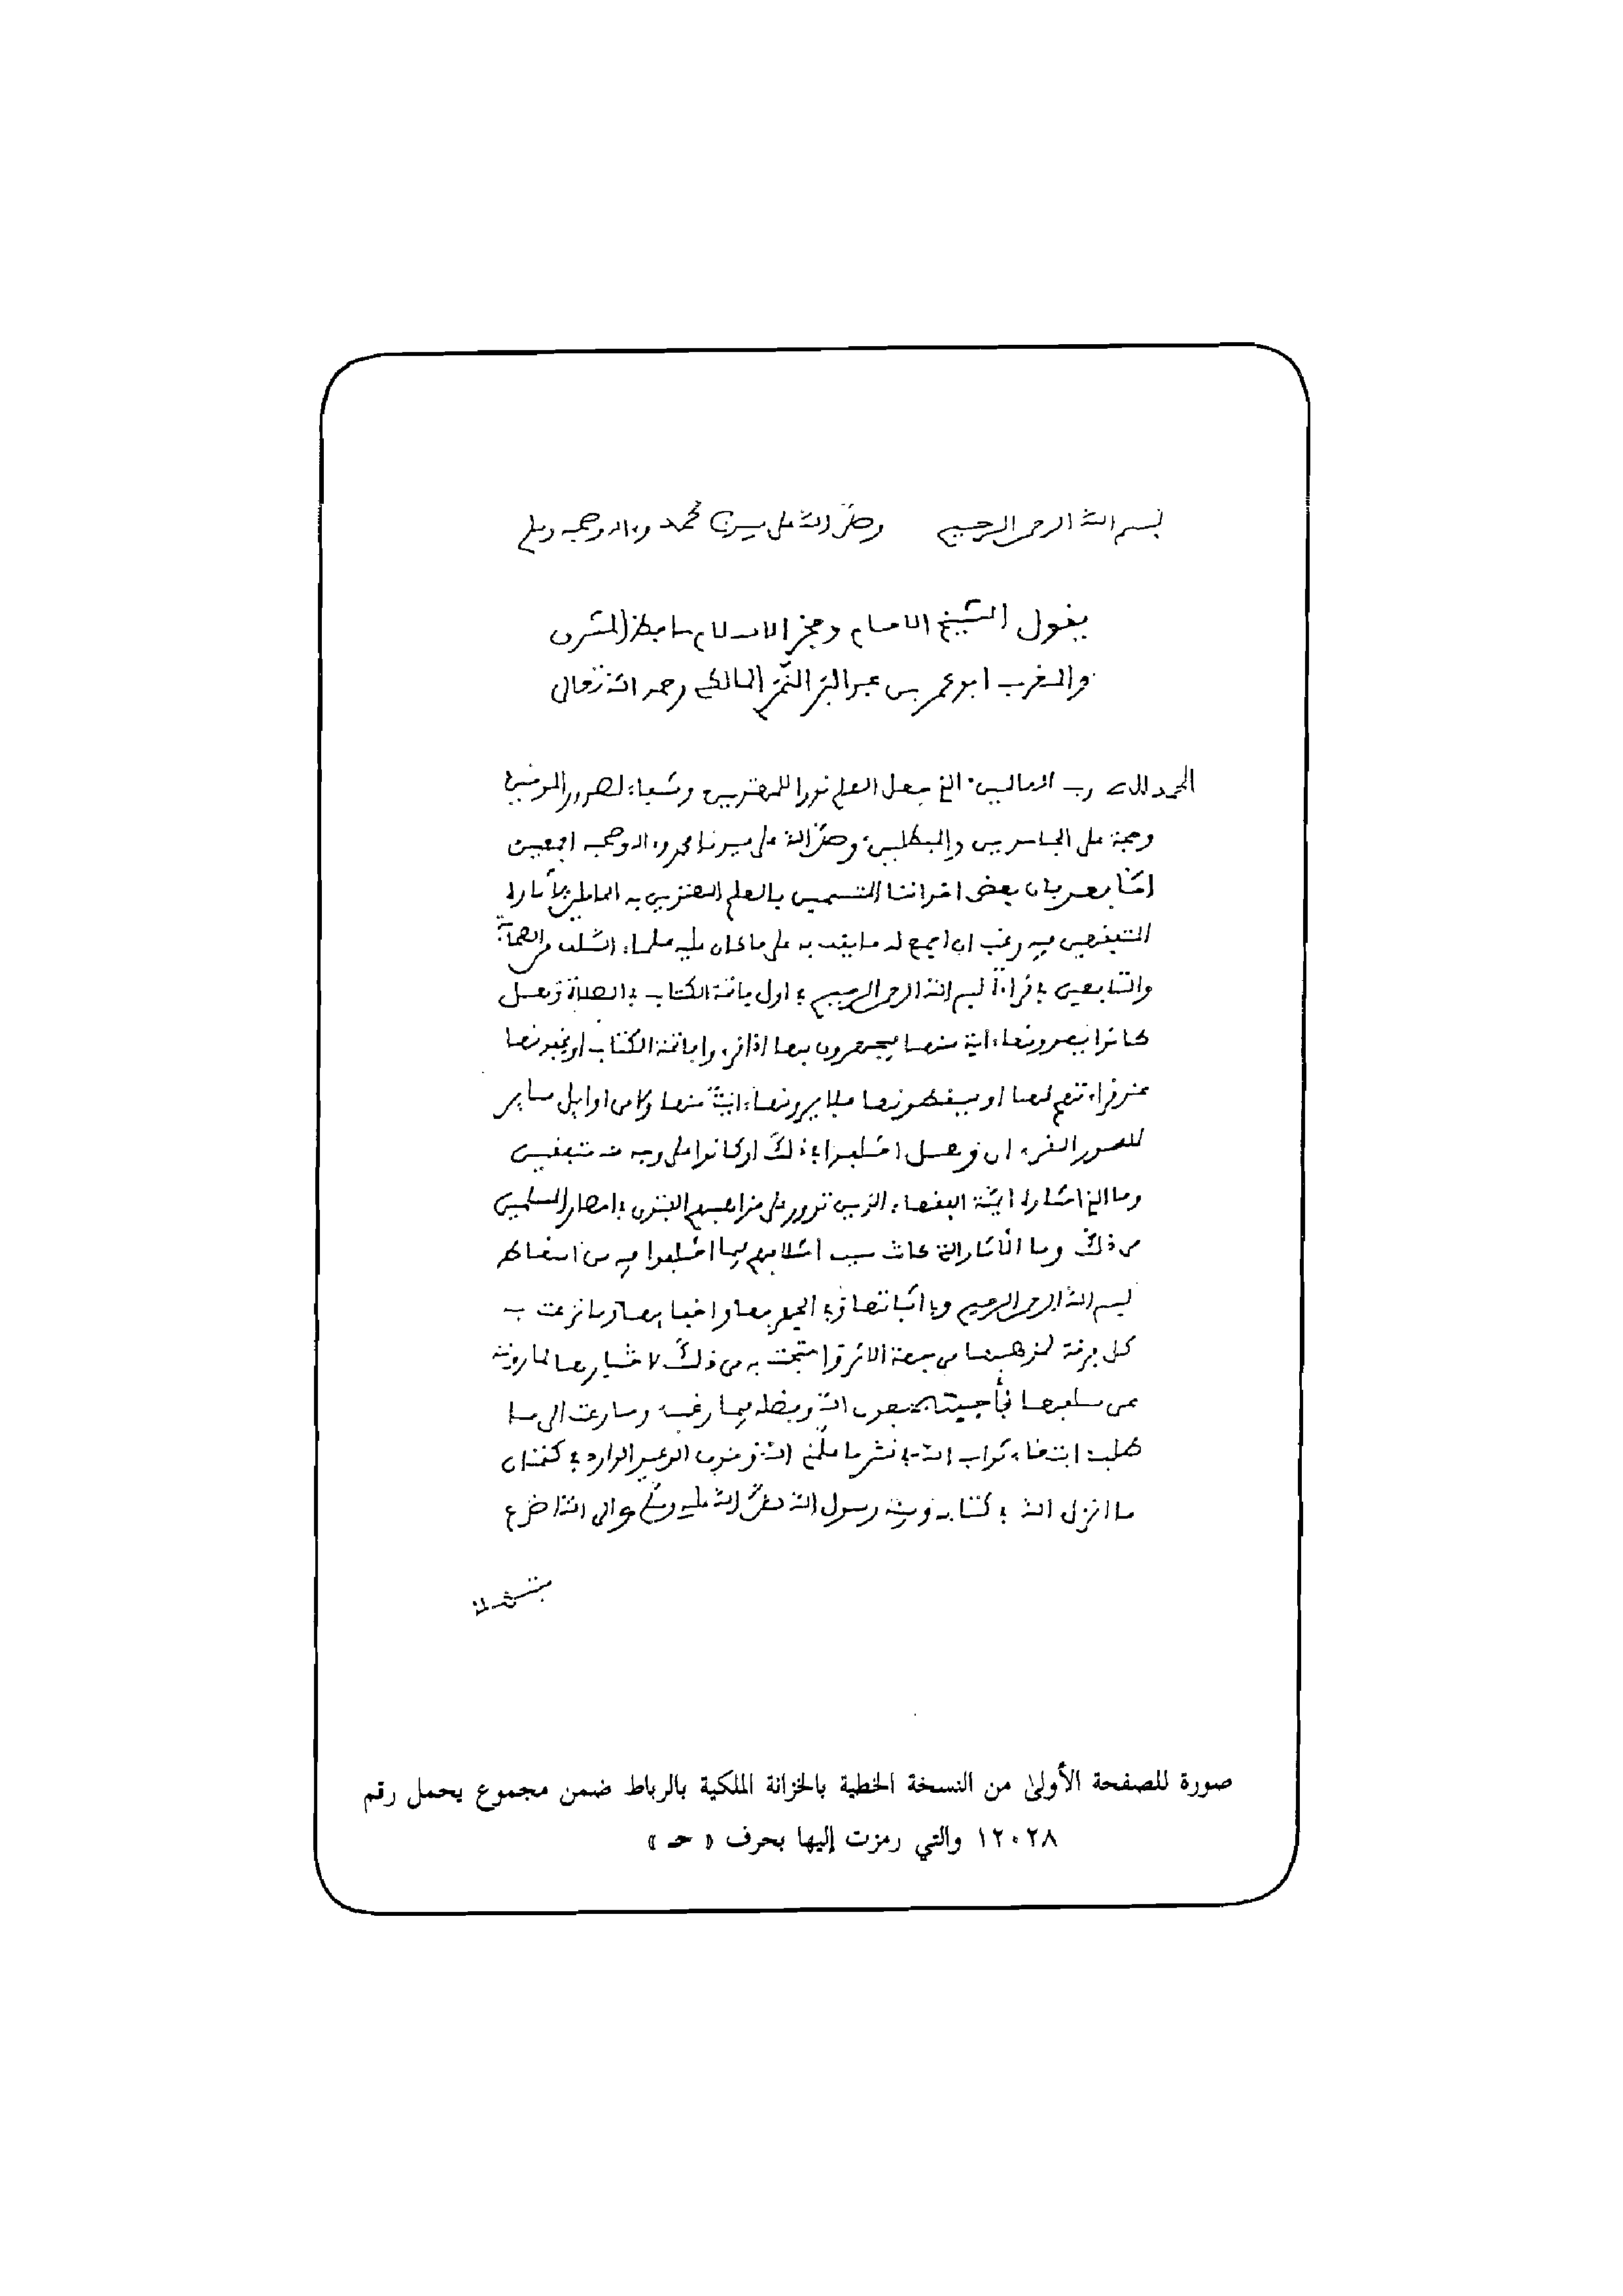 بسم الله الرحمن الرحيم وصلى الله على سيدنا محمد وءاله وصحبه وسلم
يقول الشيخ الامام وفخر الاسلام حافظ المشرق
والمغرب ابو عمر بن عبد البر النمري المالكي رحمه الله تعالى
الحمد لله رب العالمين الذي جعل العلم نورا للمهتدين وشفاء لصدور المومنين
وحجة على الجاحدين والمبطلين وصلى الله على سيدنا محمد وءاله وصحبه اجمعين
اما بعد فان بعض اخواننا المتسمين بالعلم المعتنين به
المتفقهين فيه رغب ان اجمع له ما يقف به على ما كان عليه علماء السلف من الصحابة
والتابعين في قراءة بسم الله الرحمن الرحيم في اول فاتحة الكتاب في الصلاة وهل
كانوا يعدونها ءاية منها يجهرون بها اذا قرءوا فاتحة الكتاب او يخفونها
عند قراءتهم لها او يسقطونها فلا يرونها ءاية منها ولا من اوايل ساير
السور القرءان وهل اختلفوا في ذلك او كانوا على وجه منه متفقين
وما الذي اختاره ايمة الفقهاء الذين تدور على مذاهبهم الفتوى في امصار المسلمين
من ذلك وما الآثار التي كانت سبب اختلافهم فيما اختلفوا فيه من اسقاط
بسم الله الرحمن الرحيم و اثباتها وفي الجهر بها و اخفايها وما نزعت به
كل فرقة لمذهبها من جهة الاثر واحتجت به من ذلك لاختيارها لما روته
عن سلفها فأجبته بعون الله وفضله فيما رغبه وسارعت الى ما
طلب ابتغاء ثواب الله في نشر ما علمني الله وخوف الوعيد الوارد في كتمان
ما انزل الله في كتابه وسنة رسول الله صلى الله عليه وسلم والى الله اضرع
صورة للصفحة الأولى من النسخة الخطية بالخزانة الملكية بالرباط ضمن مجموع يحمل رقم
١٢٠٢٨ والتي رمزت إليها بحرف « حـ »